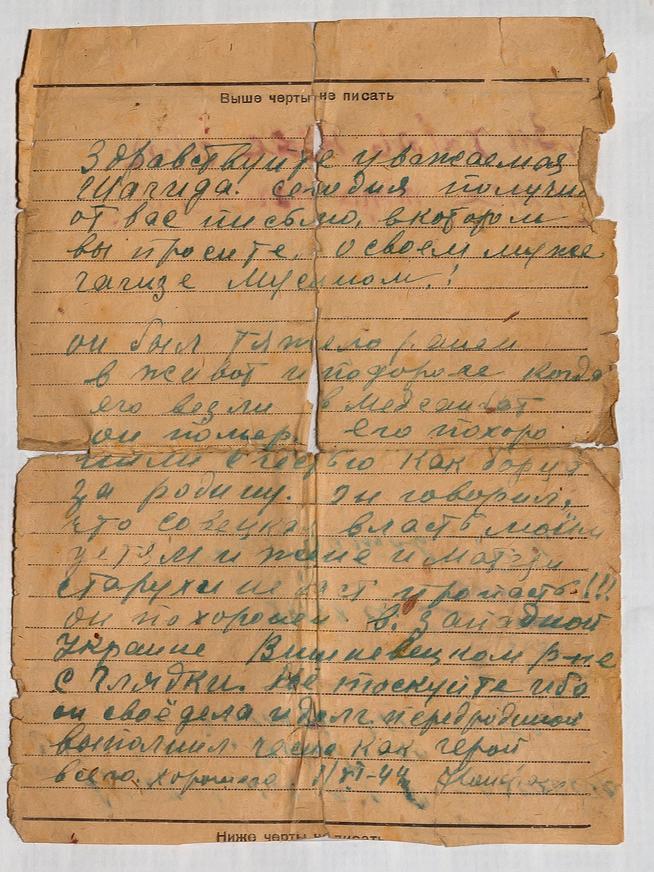 Выше черты не писать
Здравствуйте уважаемая
Шагида. сегодня получил
от вас письмо, в котором
вы просите, о своем муже
гагизе Мусином.!
он был тяжело ранен
в живот и по дороге когда
его везли в Медсанбат
он помер. его похоро
нили с честью как борца
За родину. он говорил,
что совецкая власть моим
детям и жене и матери
старухи не даст пропасть!!!
он похоронен в. западной
Украине Вишневецком р-не
с Глядки. Не тоскуйте ибо
он своё дела и долг перед родиной
выполнил как герой
всего хорошего. XI-44
Ниже черты не писать